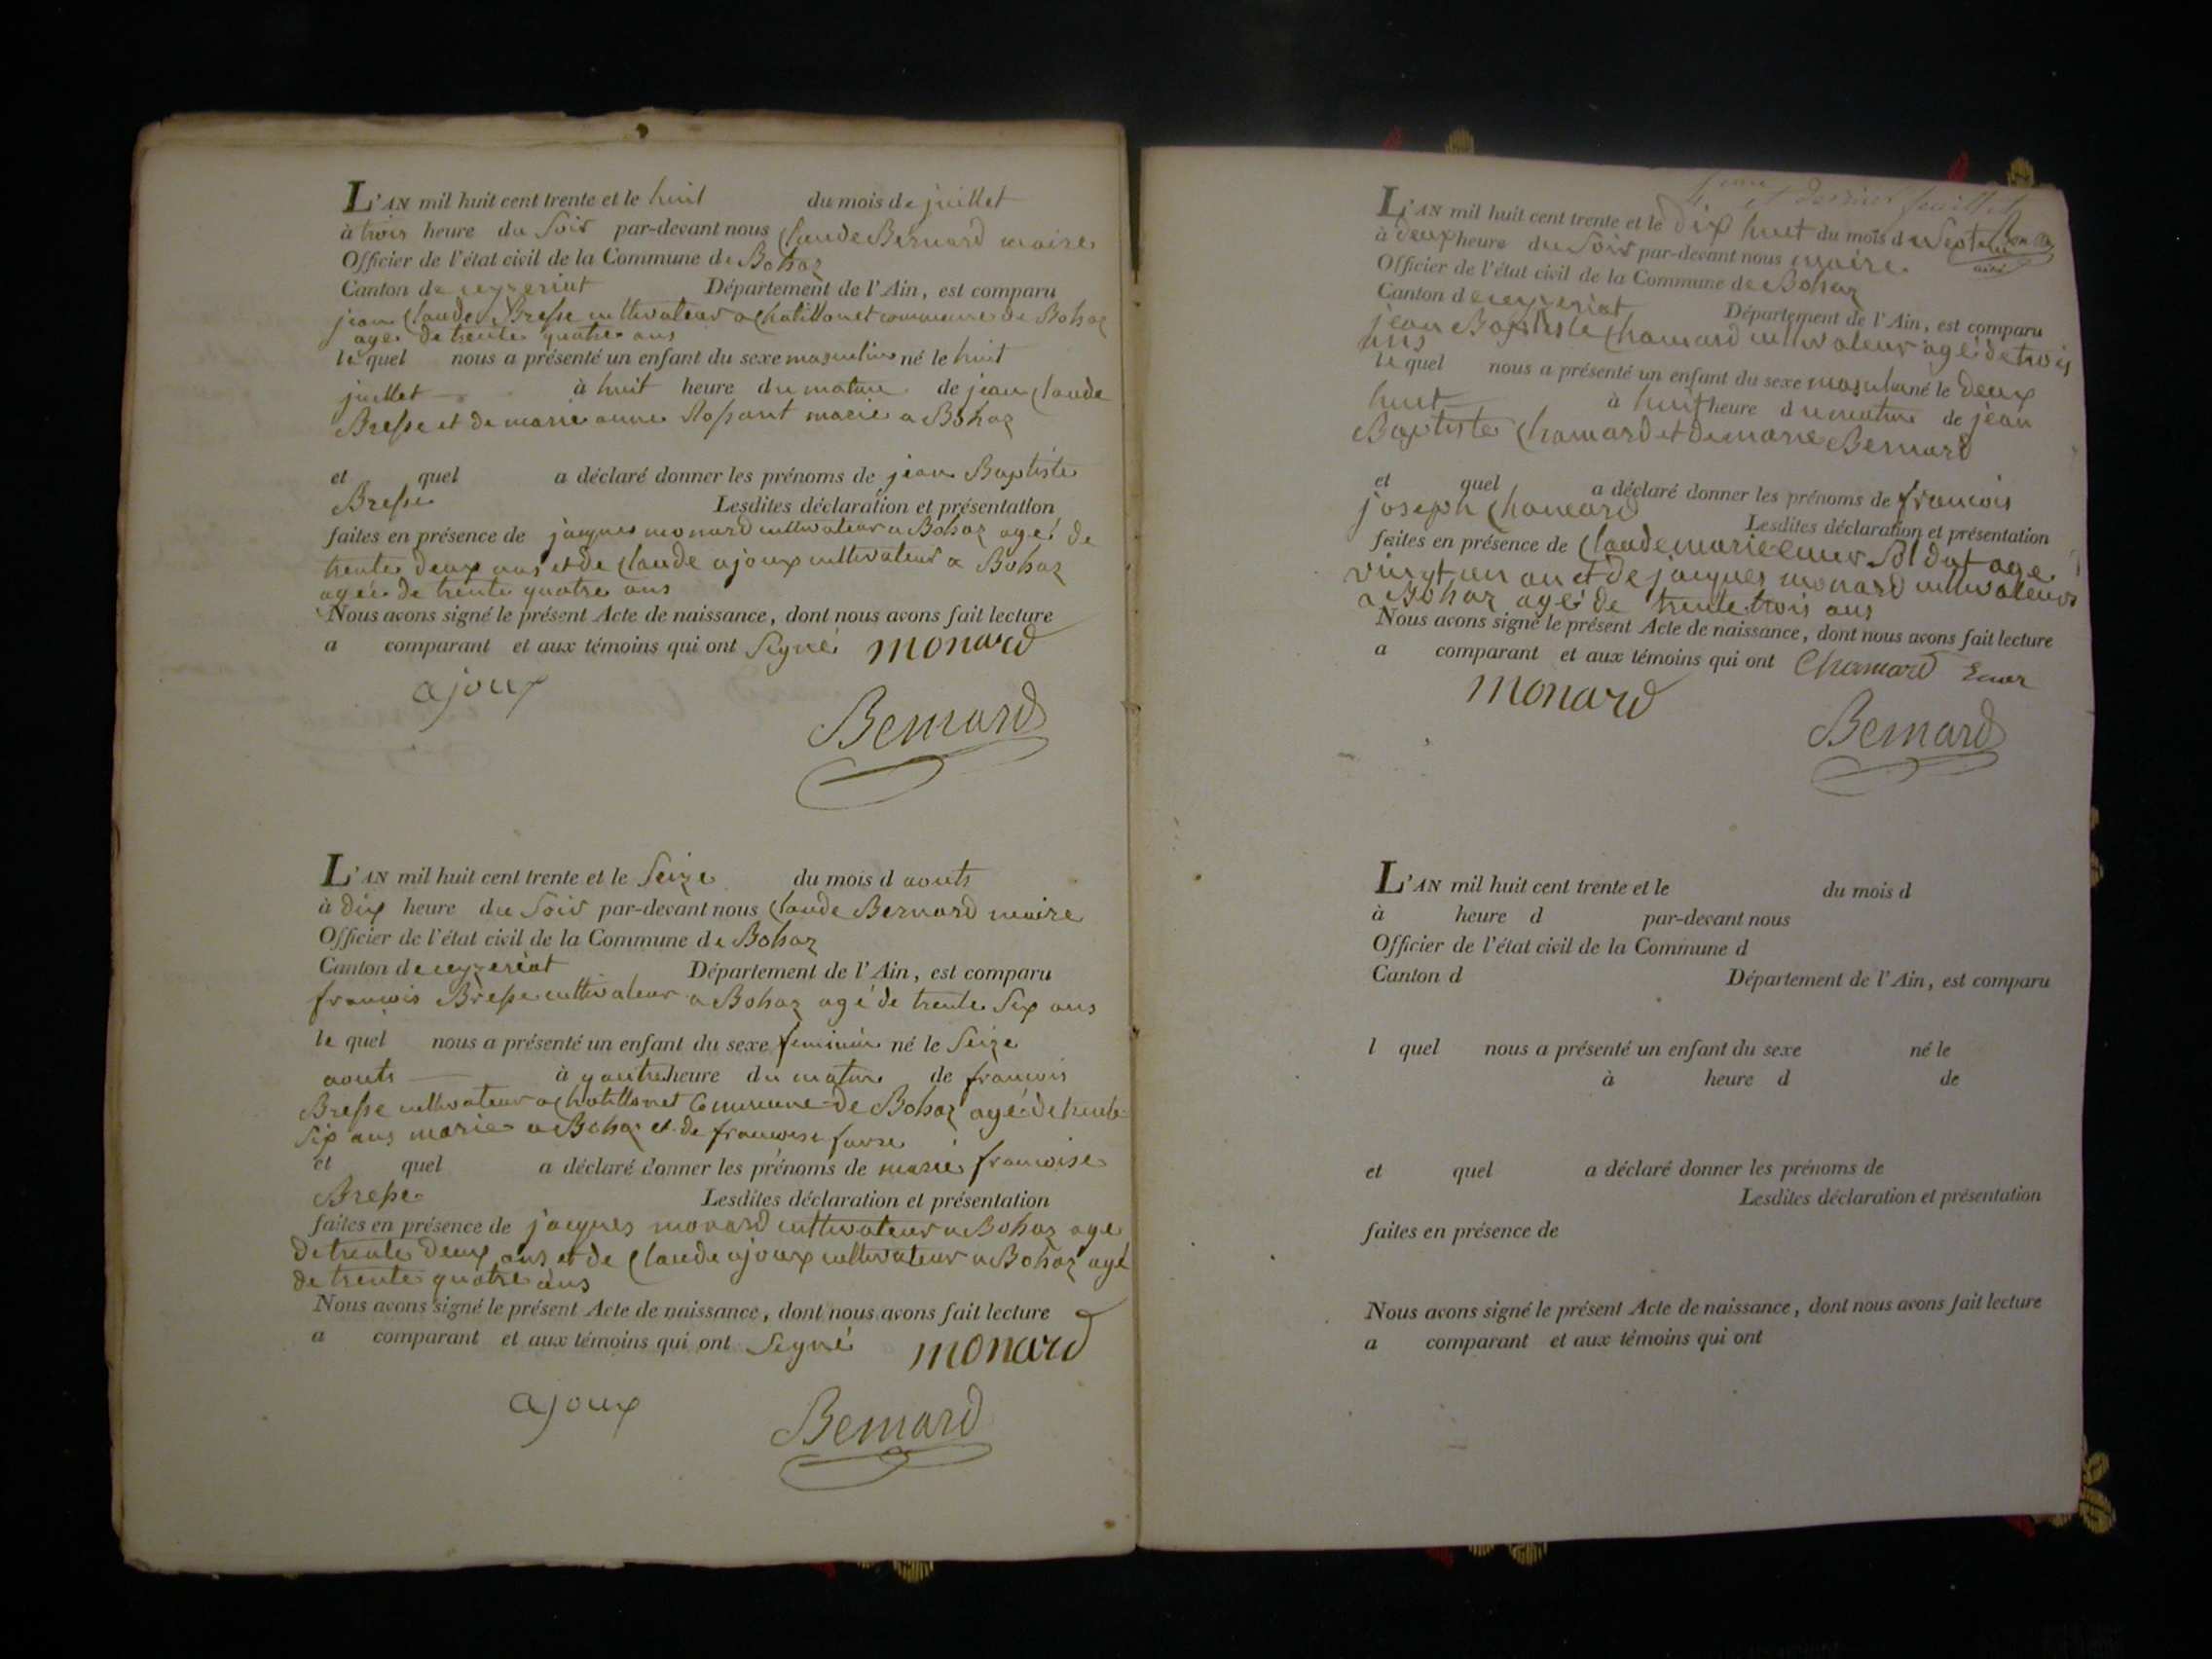 L'AN mil huit cent trente et le huit du mois de juillet
à trois heure du Soir par-devant nous Claude Bernard maire
Officier de l'état civil de la Commune de Bohaz
Canton de ceyzeriat Département de l'Ain, est comparu
jean Claude Bresse cultivateur a Chatillonet commune de Bohaz
age de trente quatre ans
le quel nous a présenté un enfant du sexe masculin né le huit
juillet à huit heure du matin de jean Claude
Bresse et de marie anne marié a Bohaz
et quel a déclaré donner les prénoms de jean Baptiste
Bresse Lesdites déclaration et présentation
faites en présence de jacques monard cultivateur a Bohaz agé de
trente deux ans et de Claude ajoux cultivateur a Bohaz
agée de trente quatre ans
Nous avons signé le présent Acte de naissance, dont nous avons fait lecture
a comparant et aux témoins qui ont Signé monard
ajoux
Bernard
L'AN mil huit cent trente et le Seize du mois d aouts
à dix heure du Soir par-devant nous Claude Bernard maire
Officier de l'état civil de la Commune de Bohaz
Canton de ceyzeriat Département de l'Ain, est comparu
francois Bresse cultivateur a Bohaz agé de trente Six ans
le quel nous a présenté un enfant du sexe feminin né le Seize
aouts à quatre heure du matin de francois
Bresse cultivateur a Chatillonet Commune de Bohaz agé de trente
Six ans marié a Bohaz et de francoise favre
et quel a déclaré donner les prénoms de marie francoise
Bresse Lesdites déclaration et présentation
faites en présence de jacques monard cultivateur a Bohaz age
de trente deux ans et de Claude ajoux cultivateur a Bohaz agé
de trente quatre ans
Nous avons signé le présent Acte de naissance, dont nous avons fait lecture
a comparant et aux témoins qui ont Signé monard
ajoux
Bernard
et dernier feuillet
L'AN mil huit cent trente et le dix huit du mois d
à deux heure du Soir par-devant nous maire
Officier de l'état civil de la Commune de Bohaz
Canton de ceyzeriat Département de l'Ain, est comparu
jean Baptiste Chamard cultivateur agé de trois
ans
le quel nous a présenté un enfant du sexe masculin né le deux
huit à huit heure du matin de jean
Baptiste Chamard et de marie Bernard
et quel a déclaré donner les prénoms de francois
joseph Chamard Lesdites déclaration et présentation
faites en présence de Claude marie Soldat age
vingt un an et de jacques monard cultivateur
a Bohaz agé de trente trois ans
Nous avons signé le présent Acte de naissance, dont nous avons fait lecture
a comparant et aux témoins qui ont Chamard
monard
Bernard
L'AN mil huit cent trente et le du mois d
à heure d par-devant nous
Officier de l'état civil de la Commune d
Canton d Département de l'Ain, est comparu
l quel nous a présenté un enfant du sexe né le
à heure d de
et quel a déclaré donner les prénoms de
Lesdites déclaration et présentation
faites en présence de
Nous avons signé le présent Acte de naissance, dont nous avons fait lecture
a comparant et aux témoins qui ont